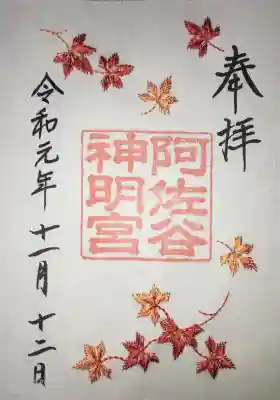 奉拝
阿佐谷
神明宮
令和元年 十一月 十二日